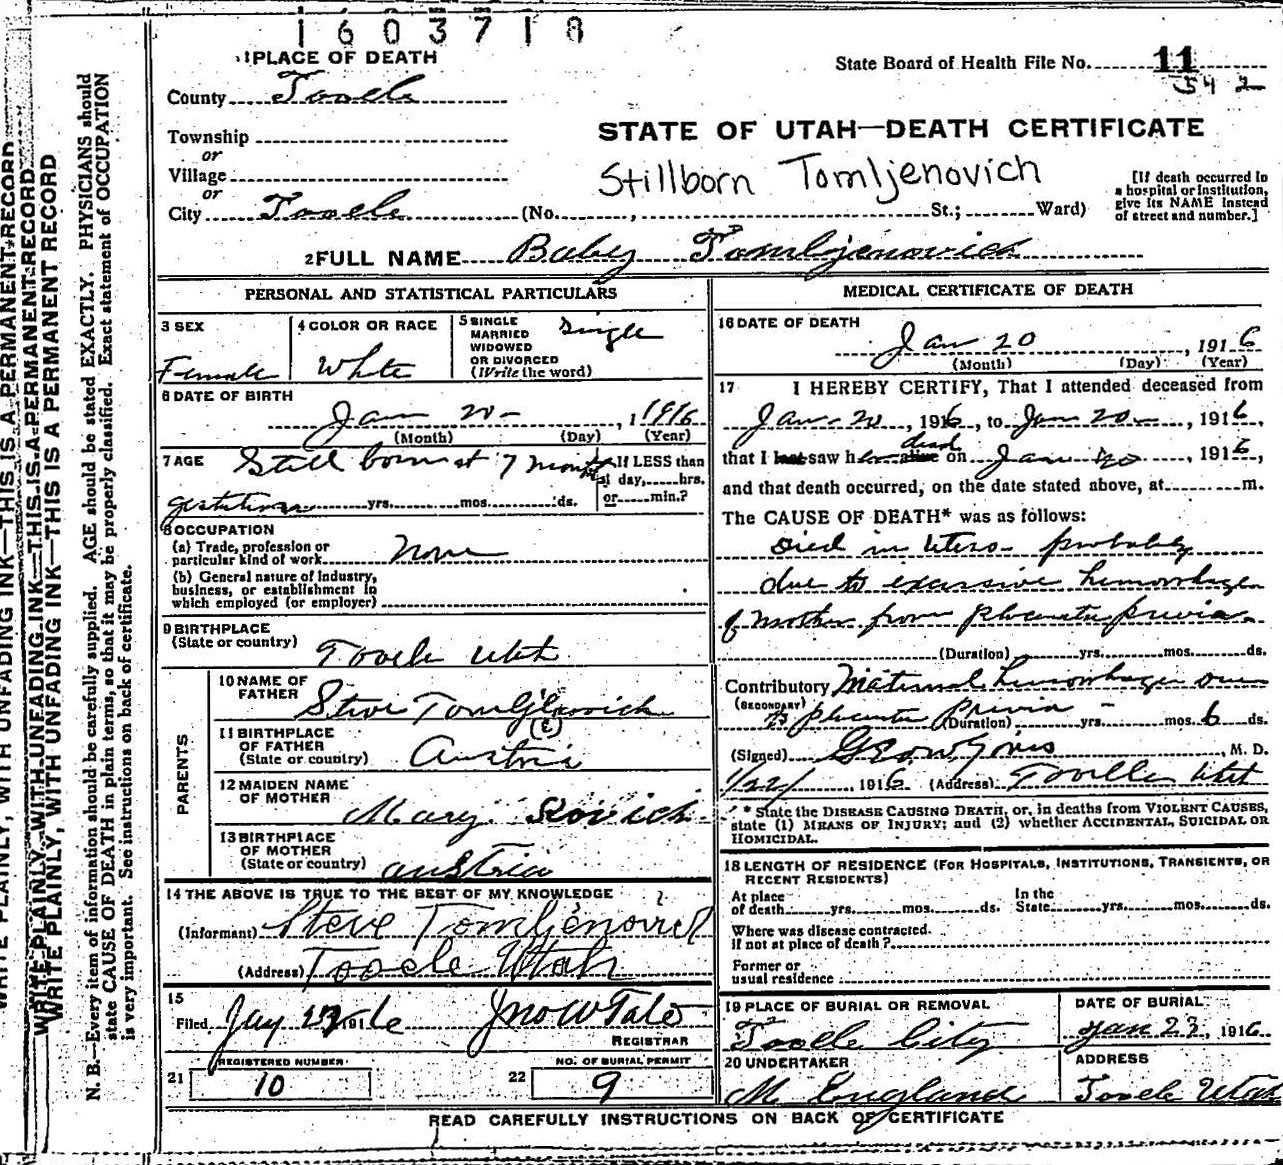 1603718
1 PLACE OF DEATH
State Board of Health File No. 11
542
County Tooele
STATE OF UTAH—DEATH CERTIFICATE
Township
or
Village
or
City Tooele (No. , St.; Ward)
Stillborn Tomljenovich
[If death occurred in a hospital or institution, give its NAME instead of street and number.]
2 FULL NAME Baby Tomljenovich
PERSONAL AND STATISTICAL PARTICULARS
3 SEX
Female
4 COLOR OR RACE
White
5 SINGLE
MARRIED
WIDOWED
OR DIVORCED
(Write the word)
Single
6 DATE OF BIRTH
Jan 20- , 1 1916
(Month) (Day) (Year)
7 AGE Still born at 7 months
gestation yrs. mos. ds.
If LESS than
1 day, hrs.
or min.?
8 OCCUPATION
(a) Trade, profession or
particular kind of work None
(b) General nature of Industry,
business, or establishment in
which employed (or employer)
9 BIRTHPLACE
(State or country) Tooele Utah
PARENTS
10 NAME OF
FATHER Steve Tomljenovich
(e)
11 BIRTHPLACE
OF FATHER
(State or country) Austria
12 MAIDEN NAME
OF MOTHER Mary
13 BIRTHPLACE
OF MOTHER
(State or country) Austria
14 THE ABOVE IS TRUE TO THE BEST OF MY KNOWLEDGE
(Informant) Steve Tomljenovich
(Address) Tooele Utah
15
Filed 191 6 Jno W Tate
REGISTRAR
REGISTERED NUMBER
21 10
NO. OF BURIAL PERMIT
22 9
MEDICAL CERTIFICATE OF DEATH
16 DATE OF DEATH
Jan 20 , 1916
(Month) (Day) (Year)
17 I HEREBY CERTIFY, That I attended deceased from
Jan - 20 , 1916, to Jan 20 - , 1916,
that I last saw her alive dead on Jan 20 , 1916,
and that death occurred, on the date stated above, at m.
The CAUSE OF DEATH* was as follows:
Died in Utero - probably
due to excessive hemorrhage
of mother from placenta previa.
(Duration) yrs. mos. ds.
Contributory Maternal hemorrhage due
(SECONDARY) to placenta previa - (Duration) yrs. mos. 6 ds.
(Signed) , M. D.
1/22/ , 1916 (Address) Tooele Utah
* State the DISEASE CAUSING DEATH, or, in deaths from VIOLENT CAUSES,
state (1) MEANS OF INJURY; and (2) whether ACCIDENTAL, SUICIDAL OR
HOMICIDAL.
18 LENGTH OF RESIDENCE (FOR HOSPITALS, INSTITUTIONS, TRANSIENTS, OR
RECENT RESIDENTS)
At place
of death yrs. mos. ds.
In the
State yrs. mos. ds.
Where was disease contracted.
If not at place of death?
Former or
usual residence
19 PLACE OF BURIAL OR REMOVAL
Tooele City
DATE OF BURIAL
Jan 22, 1916
20 UNDERTAKER
M England
ADDRESS
Tooele Utah
READ CAREFULLY INSTRUCTIONS ON BACK OF CERTIFICATE
WRITE PLAINLY, WITH UNFADING INK—THIS IS A PERMANENT RECORD
WRITE PLAINLY, WITH UNFADING INK—THIS IS A PERMANENT RECORD
WRITE PLAINLY, WITH UNFADING INK—THIS IS A PERMANENT RECORD
N. B.—Every item of information should be carefully supplied. AGE should be stated EXACTLY. PHYSICIANS should
state CAUSE OF DEATH in plain terms, so that it may be properly classified. Exact statement of OCCUPATION
is very important. See instructions on back of certificate.